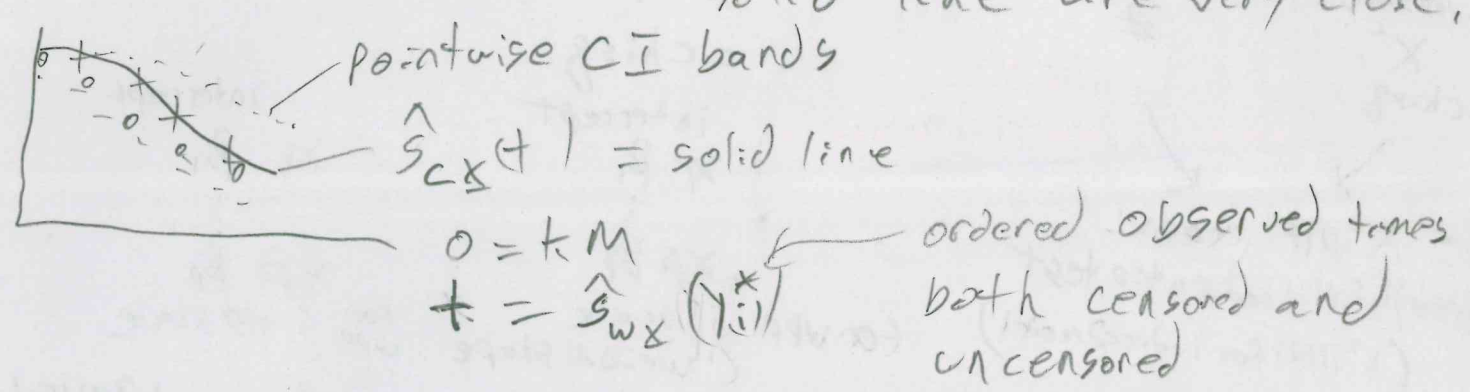 solid line are very close.
pointwise CI bands
Ŝ_cx(t) = solid line
o = KM
+ = Ŝ_wx(Y*_(i))
ordered observed times
both censored and
uncensored